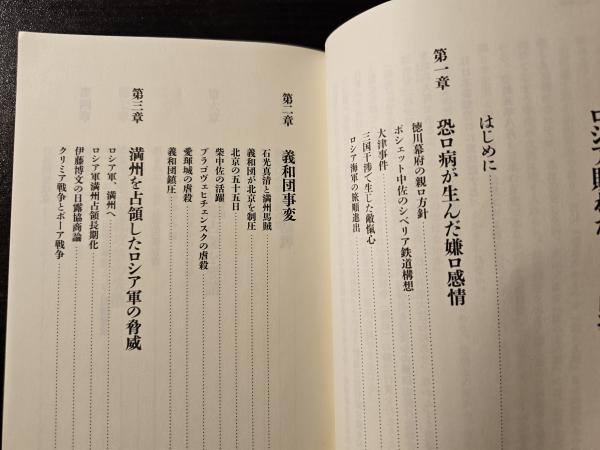 はじめに
第一章 恐ロ病が生んだ嫌ロ感情
徳川幕府の親ロ方針
ポシェット中佐のシベリア鉄道構想
大津事件
三国干渉で生じた敵愾心
ロシア海軍の旅順進出
第二章 義和団事変
石光真清と満州馬賊
義和団が北京を制圧
北京の五十五日
柴中佐の活躍
ブラゴヴェヒチェンスクの虐殺
愛琿城の虐殺
義和団鎮圧
第三章 満州を占領したロシア軍の脅威
ロシア軍、満州へ
ロシア軍満州占領長期化
伊藤博文の日露協商論
クリミア戦争とボーア戦争